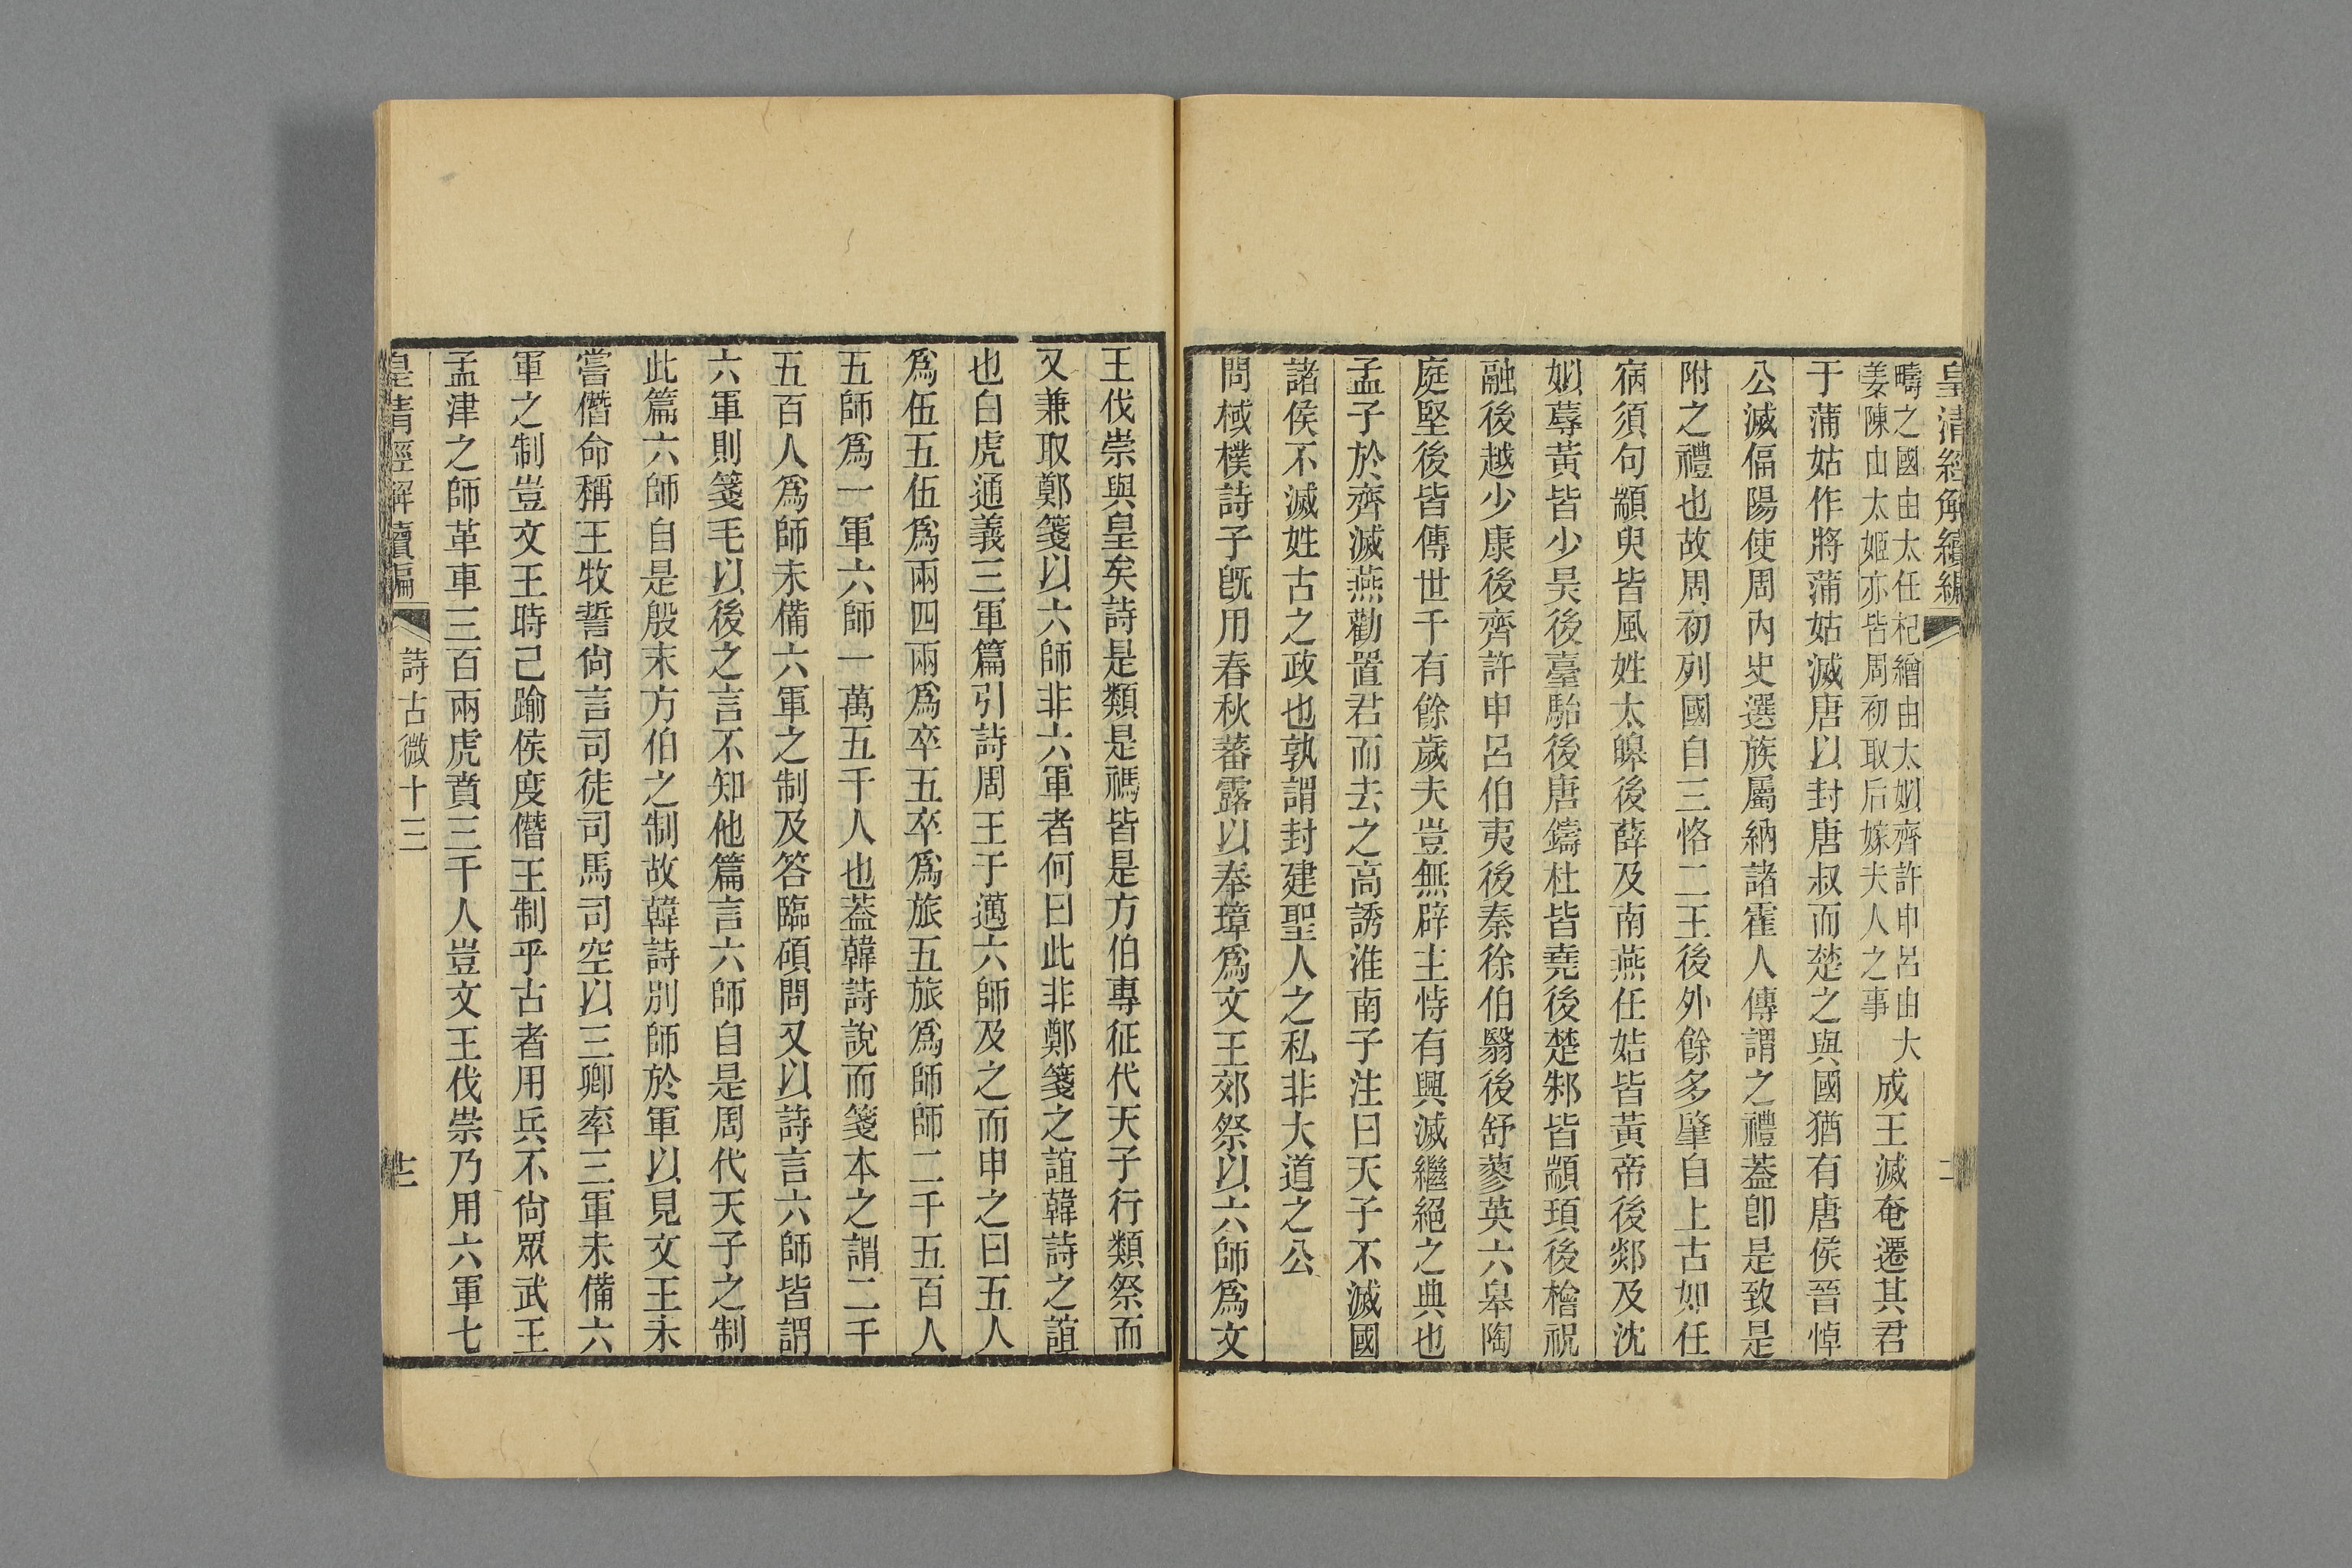 皇清經解續編
疇之國由太任杞繒由太姒齊許申呂由大
姜陳由太姬亦皆周初取后嫁夫人之事
成王滅奄遷其君
于蒲姑作將蒲姑滅唐以封唐叔而楚之與國猶有唐侯晉悼
公滅偪陽使周內史選族屬納諸霍人傳謂之禮蓋卽是致是
附之禮也故周初列國自三恪二王後外餘多肇自上古如任
宿須句顓臾皆風姓太皞後薛及南燕任姞皆黃帝後郯及沈
姒蓐黃皆少昊後臺駘後唐鑄杜皆堯後楚邾皆顓頊後檜祝
融後越少康後齊許申呂伯夷後秦徐伯翳後舒蓼英六皋陶
庭堅後皆傳世千有餘歲夫豈無辟主恃有興滅繼絕之典也
孟子於齊滅燕勸置君而去之高誘淮南子注曰天子不滅國
諸侯不滅姓古之政也孰謂封建聖人之私非大道之公
問棫樸詩子旣用春秋蕃露以奉璋爲文王郊祭以六師爲文
王伐崇與皇矣詩是類是禡皆是方伯專征代天子行類祭而
又兼取鄭箋以六師非六軍者何曰此非鄭箋之誼韓詩之誼
也白虎通義三軍篇引詩周王于邁六師及之而申之曰五人
爲伍五伍爲兩四兩爲卒五卒爲旅五旅爲師師二千五百人
五師爲一軍六師一萬五千人也蓋韓詩說而箋本之謂二千
五百人爲師未備六軍之制及答臨碩問又以詩言六師皆謂
六軍則箋毛以後之言不知他篇言六師自是周代天子之制
此篇六師自是殷末方伯之制故韓詩別師於軍以見文王未
嘗僭命稱王牧誓尙言司徒司馬司空以三卿率三軍未備六
軍之制豈文王時已踰侯度僭王制乎古者用兵不尙眾武王
孟津之師革車三百兩虎賁三千人豈文王伐崇乃用六軍七
皇清經解續編
詩古微十三